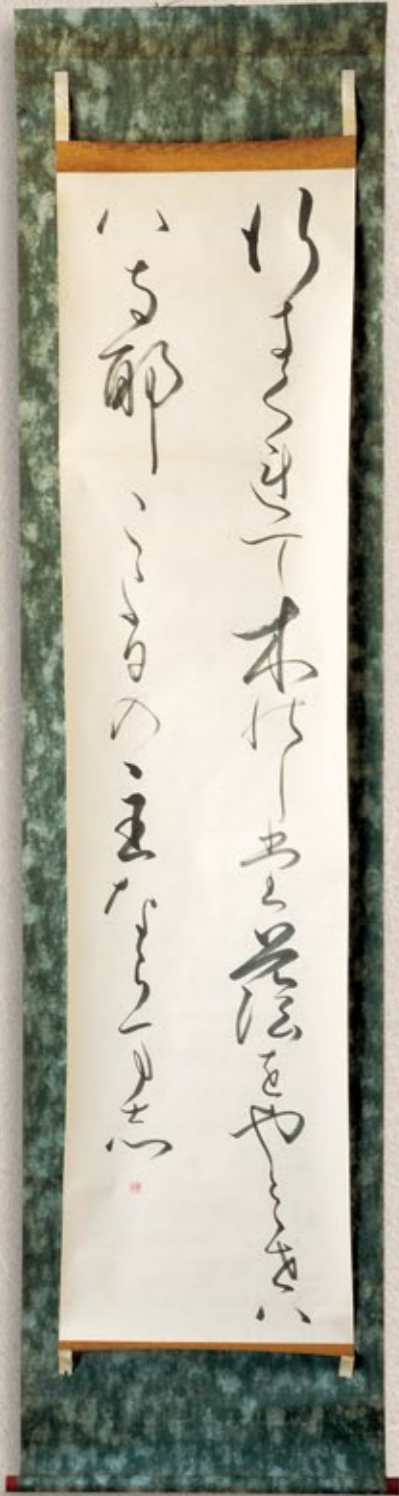 行きくれて木のした蔭をやとゝせハ
ハな耶こよひの主ならま志